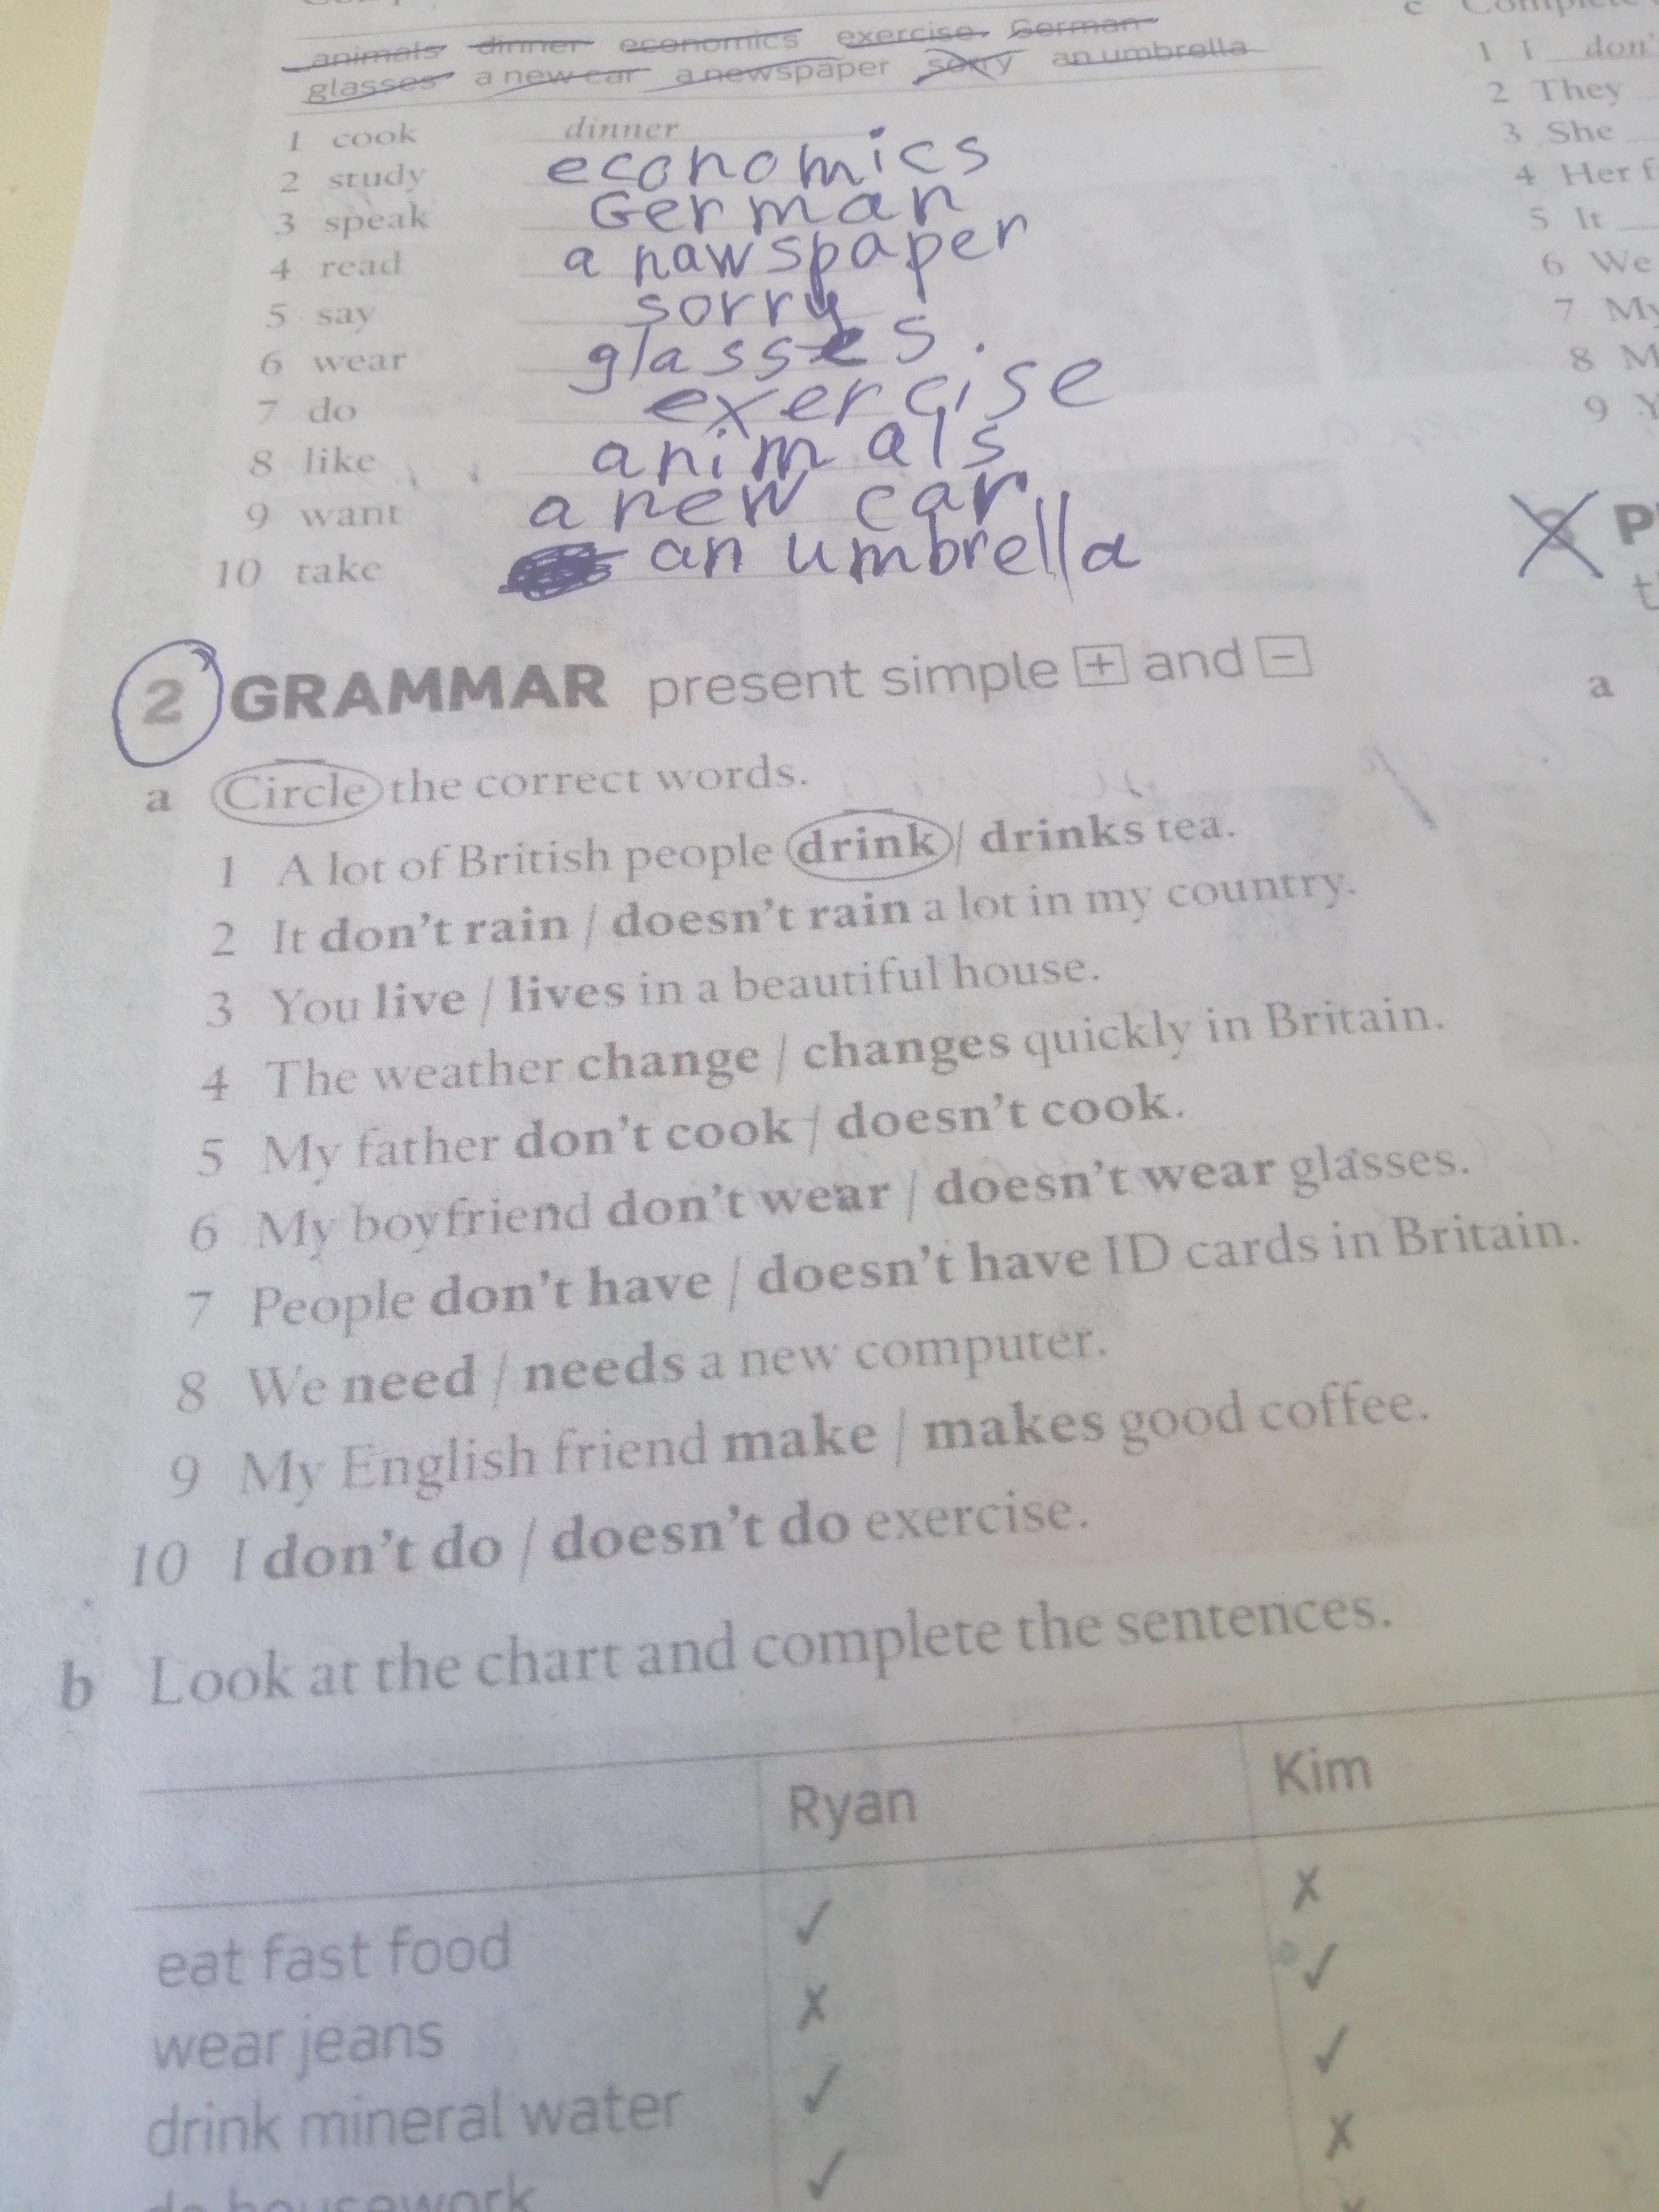 animals dinner economics exercise German
glasses a new car a newspaper sorry an umbrella
1 cook dinner
2 study economics
3 speak German
4 read a nawspaper
5 say sorry
6 wear glasses.
7 do exercise
8 like animals
9 want a new car
10 take an umbrella
2 GRAMMAR present simple + and −
a Circle the correct words.
1 A lot of British people drink / drinks tea.
2 It don't rain / doesn't rain a lot in my country.
3 You live / lives in a beautiful house.
4 The weather change / changes quickly in Britain.
5 My father don't cook / doesn't cook.
6 My boyfriend don't wear / doesn't wear glasses.
7 People don't have / doesn't have ID cards in Britain.
8 We need / needs a new computer.
9 My English friend make / makes good coffee.
10 I don't do / doesn't do exercise.
b Look at the chart and complete the sentences.
Ryan Kim
eat fast food ✓ ✗
wear jeans ✗ ✓
drink mineral water ✓ ✓
do housework ✓ ✗
c
1 I don'
2 They
3 She
4 Her f
5 It
6 We
7 My
8 M
9 Y
P
t
a